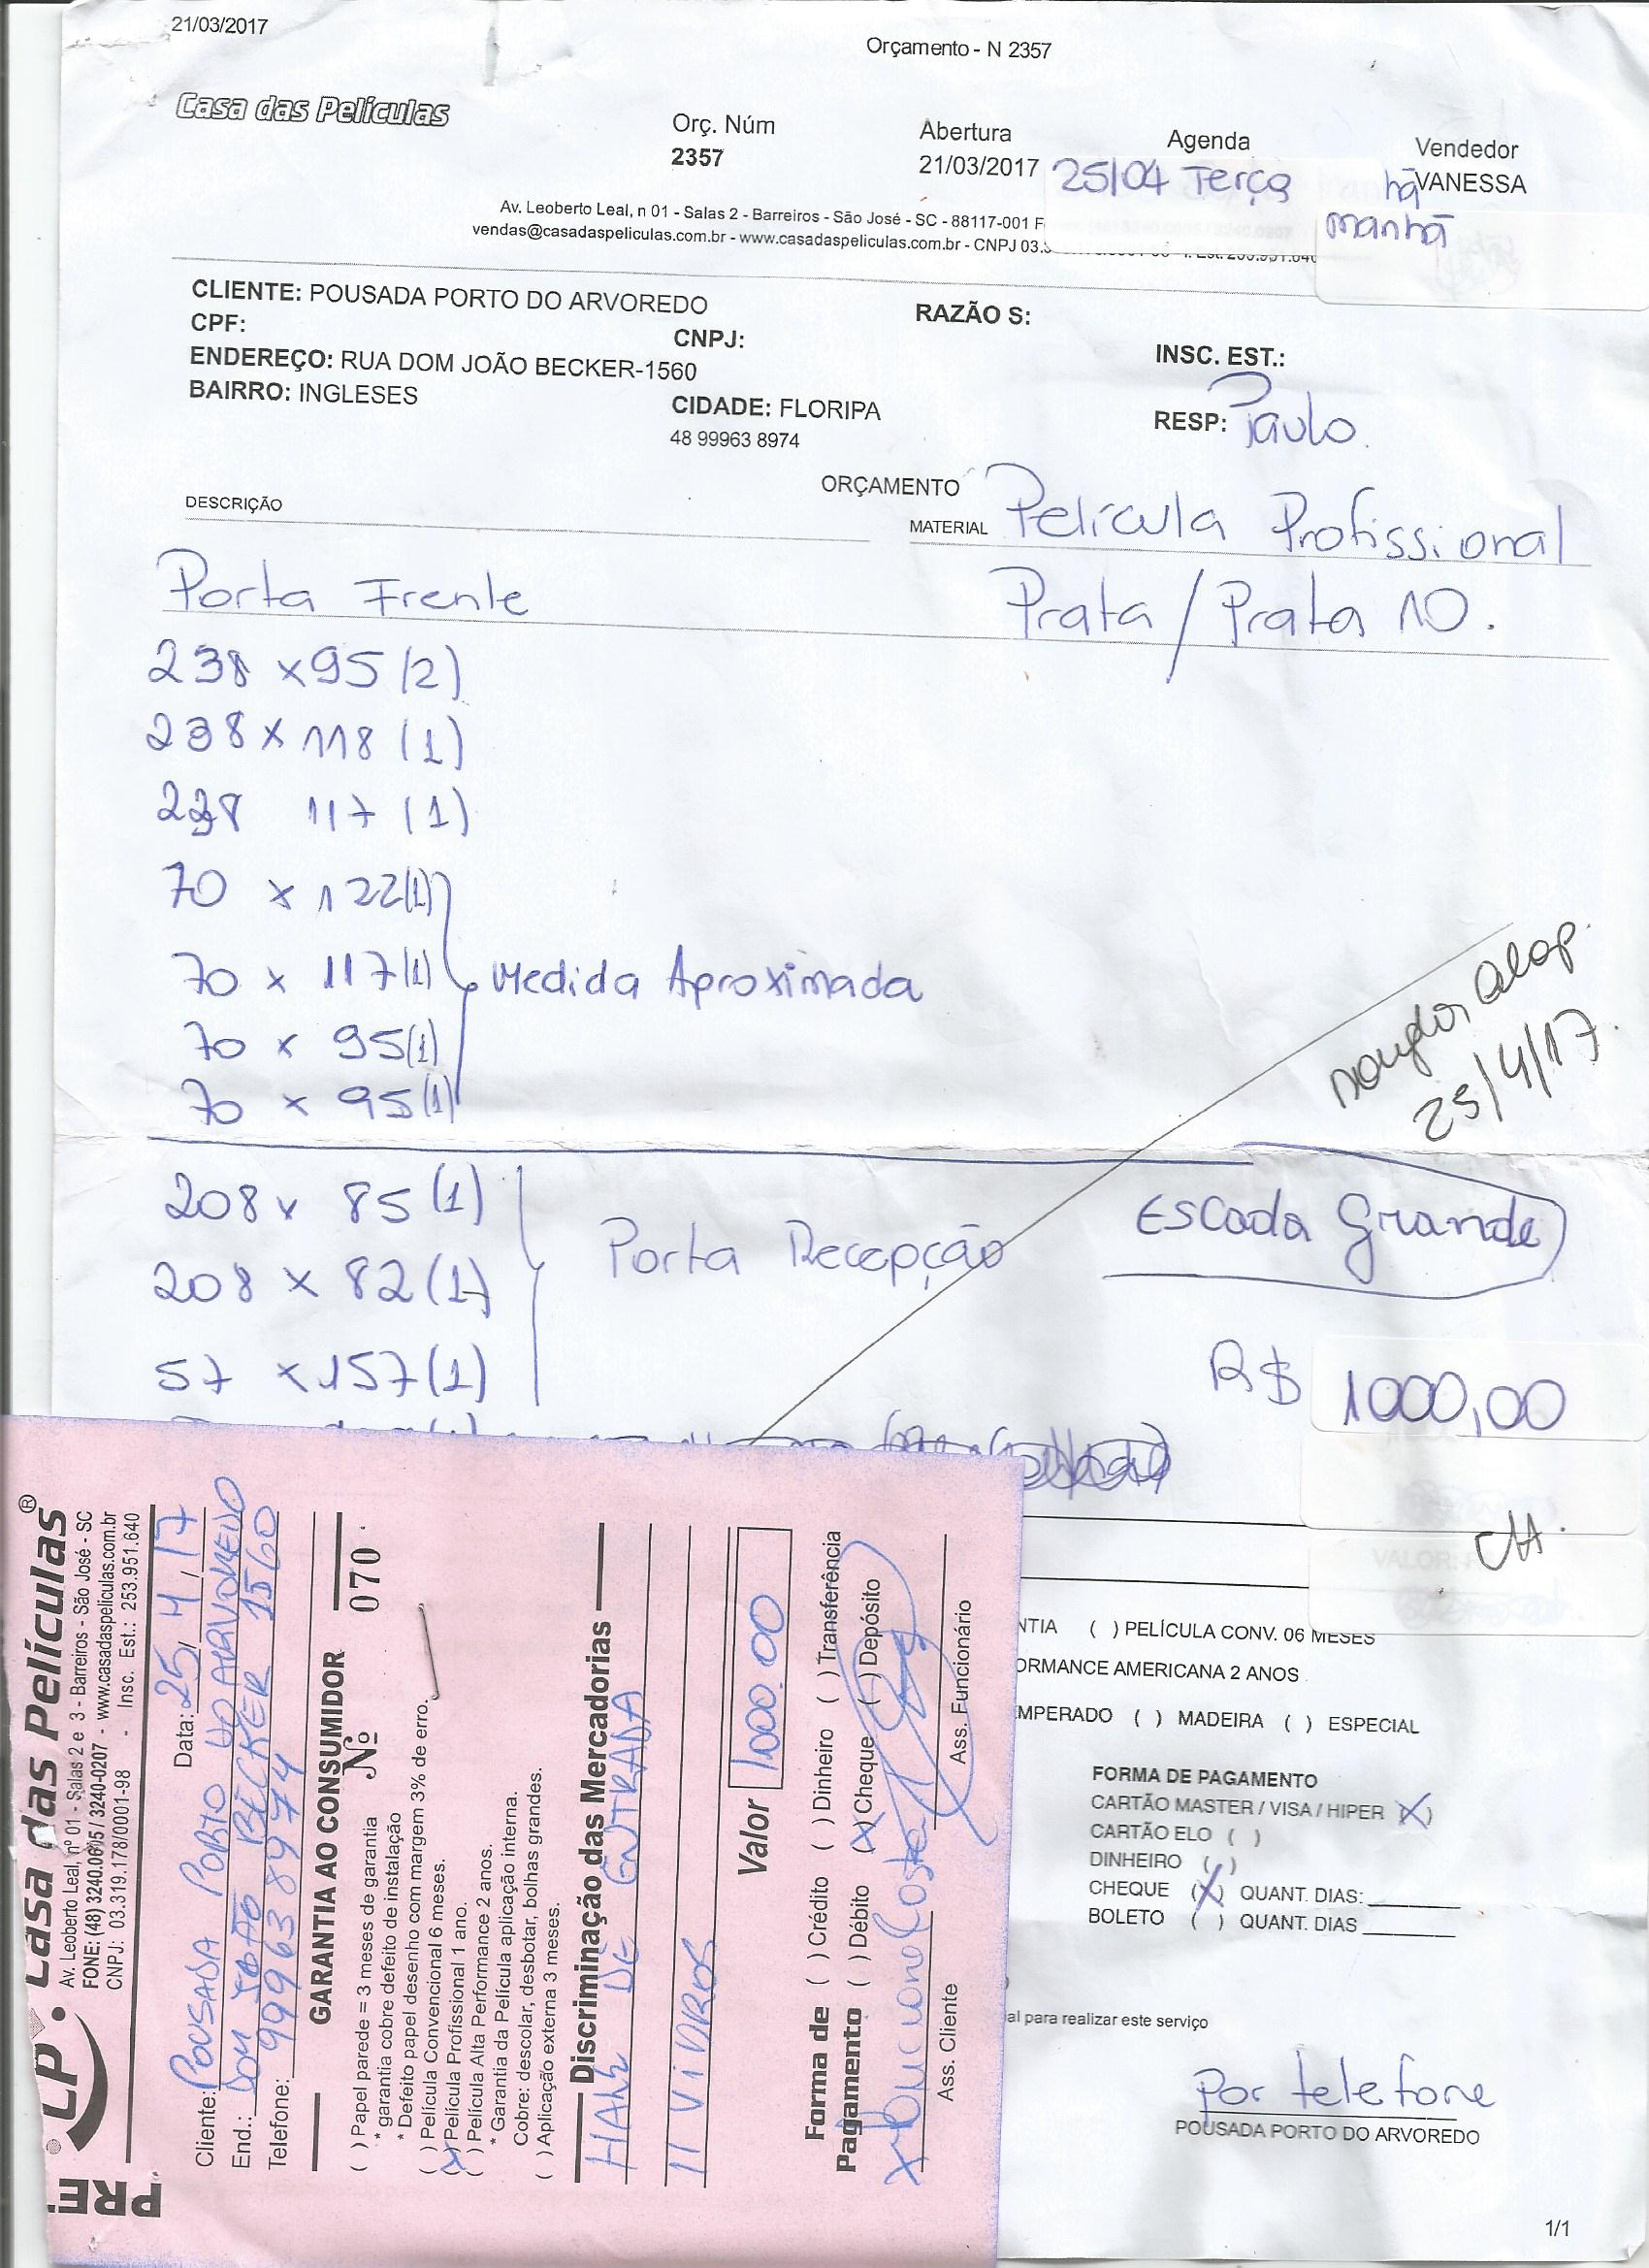 21/03/2017
Orçamento - N 2357
Casa das Películas
Orç. Núm
2357
Abertura
21/03/2017
Agenda
25/04 Terça
Vendedor
VANESSA
manhã
Av. Leoberto Leal, n 01 - Salas 2 - Barreiros - São José - SC - 88117-001 F
vendas@casadaspeliculas.com.br - www.casadaspeliculas.com.br - CNPJ 03.3
CLIENTE: POUSADA PORTO DO ARVOREDO
RAZÃO S:
CPF:
CNPJ:
INSC. EST.:
ENDEREÇO: RUA DOM JOÃO BECKER-1560
BAIRRO: INGLESES
CIDADE: FLORIPA
RESP: Paulo.
48 99963 8974
ORÇAMENTO
DESCRIÇÃO
MATERIAL Película Profissional
Prata / Prata 10.
Porta Frente
238 x 95 (2)
238 x 118 (1)
238 117 (1)
70 x 122 (1)
70 x 117 (1)
Medida Aproximada
70 x 95 (1)
70 x 95 (1)
25/4/17
208 x 85 (1)
208 x 82 (1)
57 x 157 (1)
Porta Recepção
Escada Grande
R$ 1000,00
VALOR:
NTIA ( ) PELÍCULA CONV. 06 MESES
ORMANCE AMERICANA 2 ANOS
MPERADO ( ) MADEIRA ( ) ESPECIAL
FORMA DE PAGAMENTO
CARTÃO MASTER / VISA / HIPER (X)
CARTÃO ELO ( )
DINHEIRO ( )
CHEQUE (X) QUANT. DIAS:
BOLETO ( ) QUANT. DIAS
al para realizar este serviço
por telefone
POUSADA PORTO DO ARVOREDO
1/1
LP Casa das Películas®
Av. Leoberto Leal, nº 01 - Salas 2 e 3 - Barreiros - São José - SC
FONE: (48) 3240.0615 / 3240-0207 - www.casadaspeliculas.com.br
CNPJ: 03.319.178/0001-98 - Insc. Est.: 253.951.640
Data: 25, 4, 17
Cliente: POUSADA PORTO DO ARVOREDO
End.: DOM JOÃO BECKER 1560
Telefone: 99963 8974
GARANTIA AO CONSUMIDOR
Nº 070
( ) Papel parede = 3 meses de garantia
* garantia cobre defeito de instalação
* Defeito papel desenho com margem 3% de erro.
( ) Película Convencional 6 meses.
(X) Película Profissional 1 ano.
( ) Película Alta Performance 2 anos.
* Garantia da Película aplicação interna.
Cobre: descolar, desbotar, bolhas grandes.
( ) Aplicação externa 3 meses.
Discriminação das Mercadorias
HALL DE ENTRADA
11 VIDROS
Valor 1.000.00
Forma de Pagamento
( ) Crédito ( ) Dinheiro ( ) Transferência
( ) Débito (X) Cheque ( ) Depósito
Ass. Cliente
Ass. Funcionário